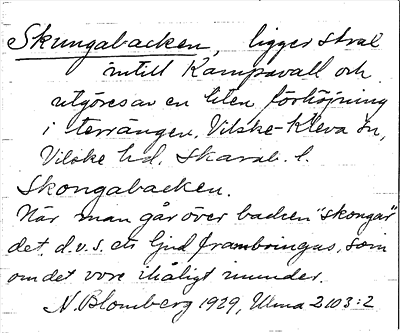 Skungabacken, ligger strax
intill Kampavall och
utgöres av en liten förhöjning
i terrängen. Vilske-Kleva sn,
Vilske hd. Skarab. l.
Skongabacken.
När man går över backen "skongar"
det, d.v.s. ett ljud frambringas, som
om det vore ihåligt inunder.
N. Blomberg 1929, Ulma 2103:2